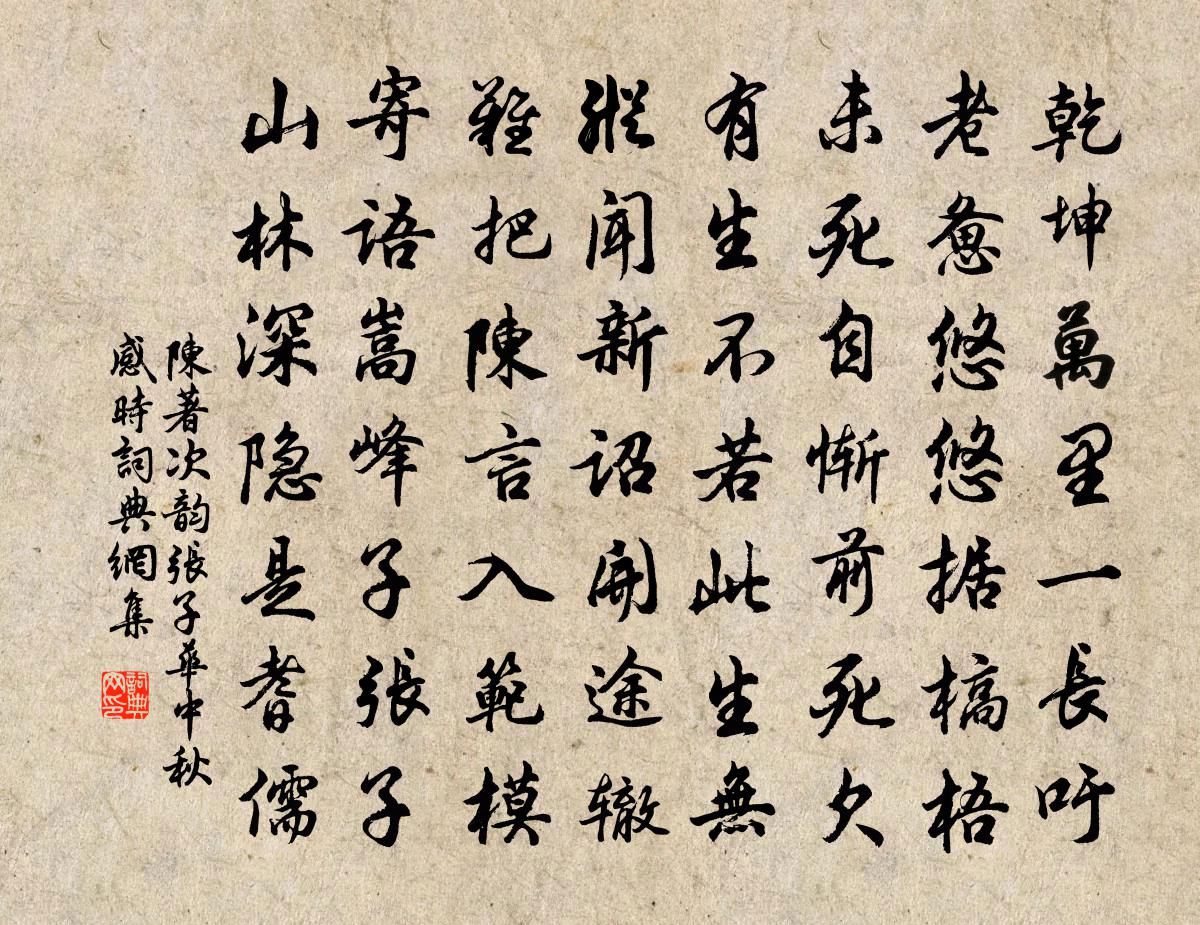 乾坤萬里一長吁
老惫悠悠据槁梧
未死自惭前死欠
有生不若此生無
縱闻新诏開途辙
難把陳言入範模
寄語嵩峰子張子
山林深隐是耆儒
陳著次韵張子華中秋
感時詞典網集
詞典网印